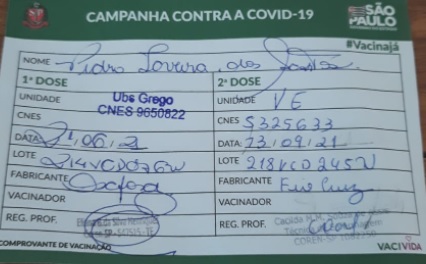 CAMPANHA CONTRA A COVID-19
SÃO PAULO
#Vacinajá
NOME Pedro dos
1ª DOSE
UNIDADE Ubs Grego
CNES CNES 9650822
DATA 21,06,21
LOTE 214VCD076W
FABRICANTE Oxford
VACINADOR
REG. PROF.
2ª DOSE
UNIDADE VE
CNES 5325633
DATA: 23,09,21
LOTE 218VCD245W
FABRICANTE Fio Cruz
VACINADOR
REG. PROF.
COMPROVANTE DE VACINAÇÃO
VACIVIDA